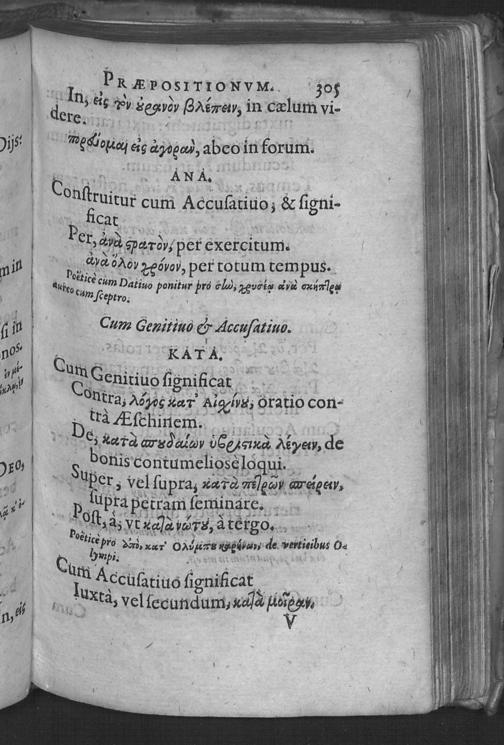 PRÆPOSITIONVM. 305
In, εἰς τὸν οὐρανὸν βλέπειν, in cælum vi-
dere.
πορεύομαι εἰς ἀγορὰν, abeo in forum.
ΑΝΑ.
Construitur cum Accusatiuo; & signi-
ficat
Per, ἀνὰ στρατὸν, per exercitum.
ἀνὰ ὅλον χρόνον, per totum tempus.
Poëticè cum Datiuo ponitur pro σὺν, χρυσέῳ ἀνὰ σκήπτρῳ
aureo cum sceptro.
Cum Genitiuo & Accusatiuo.
ΚΑΤΑ.
Cum Genitiuo significat
Contra, λόγος κατ' Αἰσχίνου, oratio con-
trà Æschinem.
De, κατὰ σπουδαίων ὑβριστικὰ λέγειν, de
bonis contumeliose loqui.
Super, vel supra, κατὰ πετρῶν σπείρειν,
supra petram seminare.
Post, à; vt κατὰ νώτου, à tergo.
Poëticè pro ἀπὸ, κατ' Ολύμπου καρήνων, de verticibus O-
lympi.
Cum Accusatiuo significat
Iuxtà, vel secundum, κατὰ μοῖραν,
V
Dijs:
m in
si in
nos.
DEO,
n, εἰς